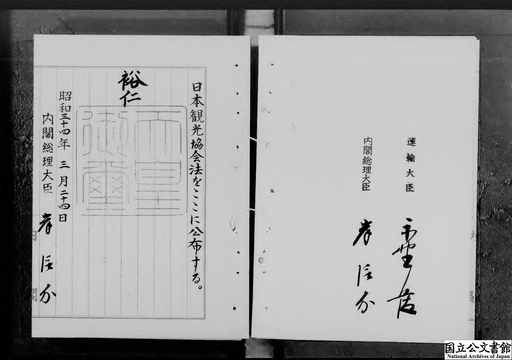 日本観光協会法をここに公布する。
裕仁
天皇御璽
昭和三十四年 三月二十四日
内閣総理大臣 岸信介
運輸大臣
内閣総理大臣 岸信介
国立公文書館
National Archives of Japan